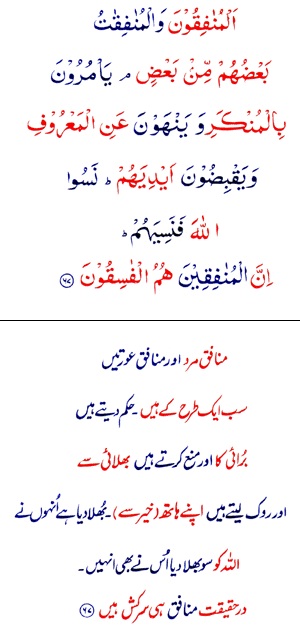 اَلْمُنٰفِقُوْنَ وَالْمُنٰفِقٰتُ
بَعْضُهُمْ مِّنْۢ بَعْضٍ ۘ يَاْمُرُوْنَ
بِالْمُنْكَرِ وَ يَنْهَوْنَ عَنِ الْمَعْرُوْفِ
وَيَقْبِضُوْنَ اَيْدِيَهُمْ ؕ نَسُوا
اللّٰهَ فَنَسِيَهُمْ ؕ
اِنَّ الْمُنٰفِقِيْنَ هُمُ الْفٰسِقُوْنَ ۶۷
منافق مرد اور منافق عورتیں
سب ایک طرح کے ہیں۔ حکم دیتے ہیں
بُرائی کا اور منع کرتے ہیں بھلائی سے
اور روک لیتے ہیں اپنے ہاتھ (خیر سے)۔ بُھلا دیا ہے اُنہوں نے
اللہ کو سو بھلا دیا اُس نے بھی انہیں۔
درحقیقت منافق ہی سرکش ہیں ۶۷